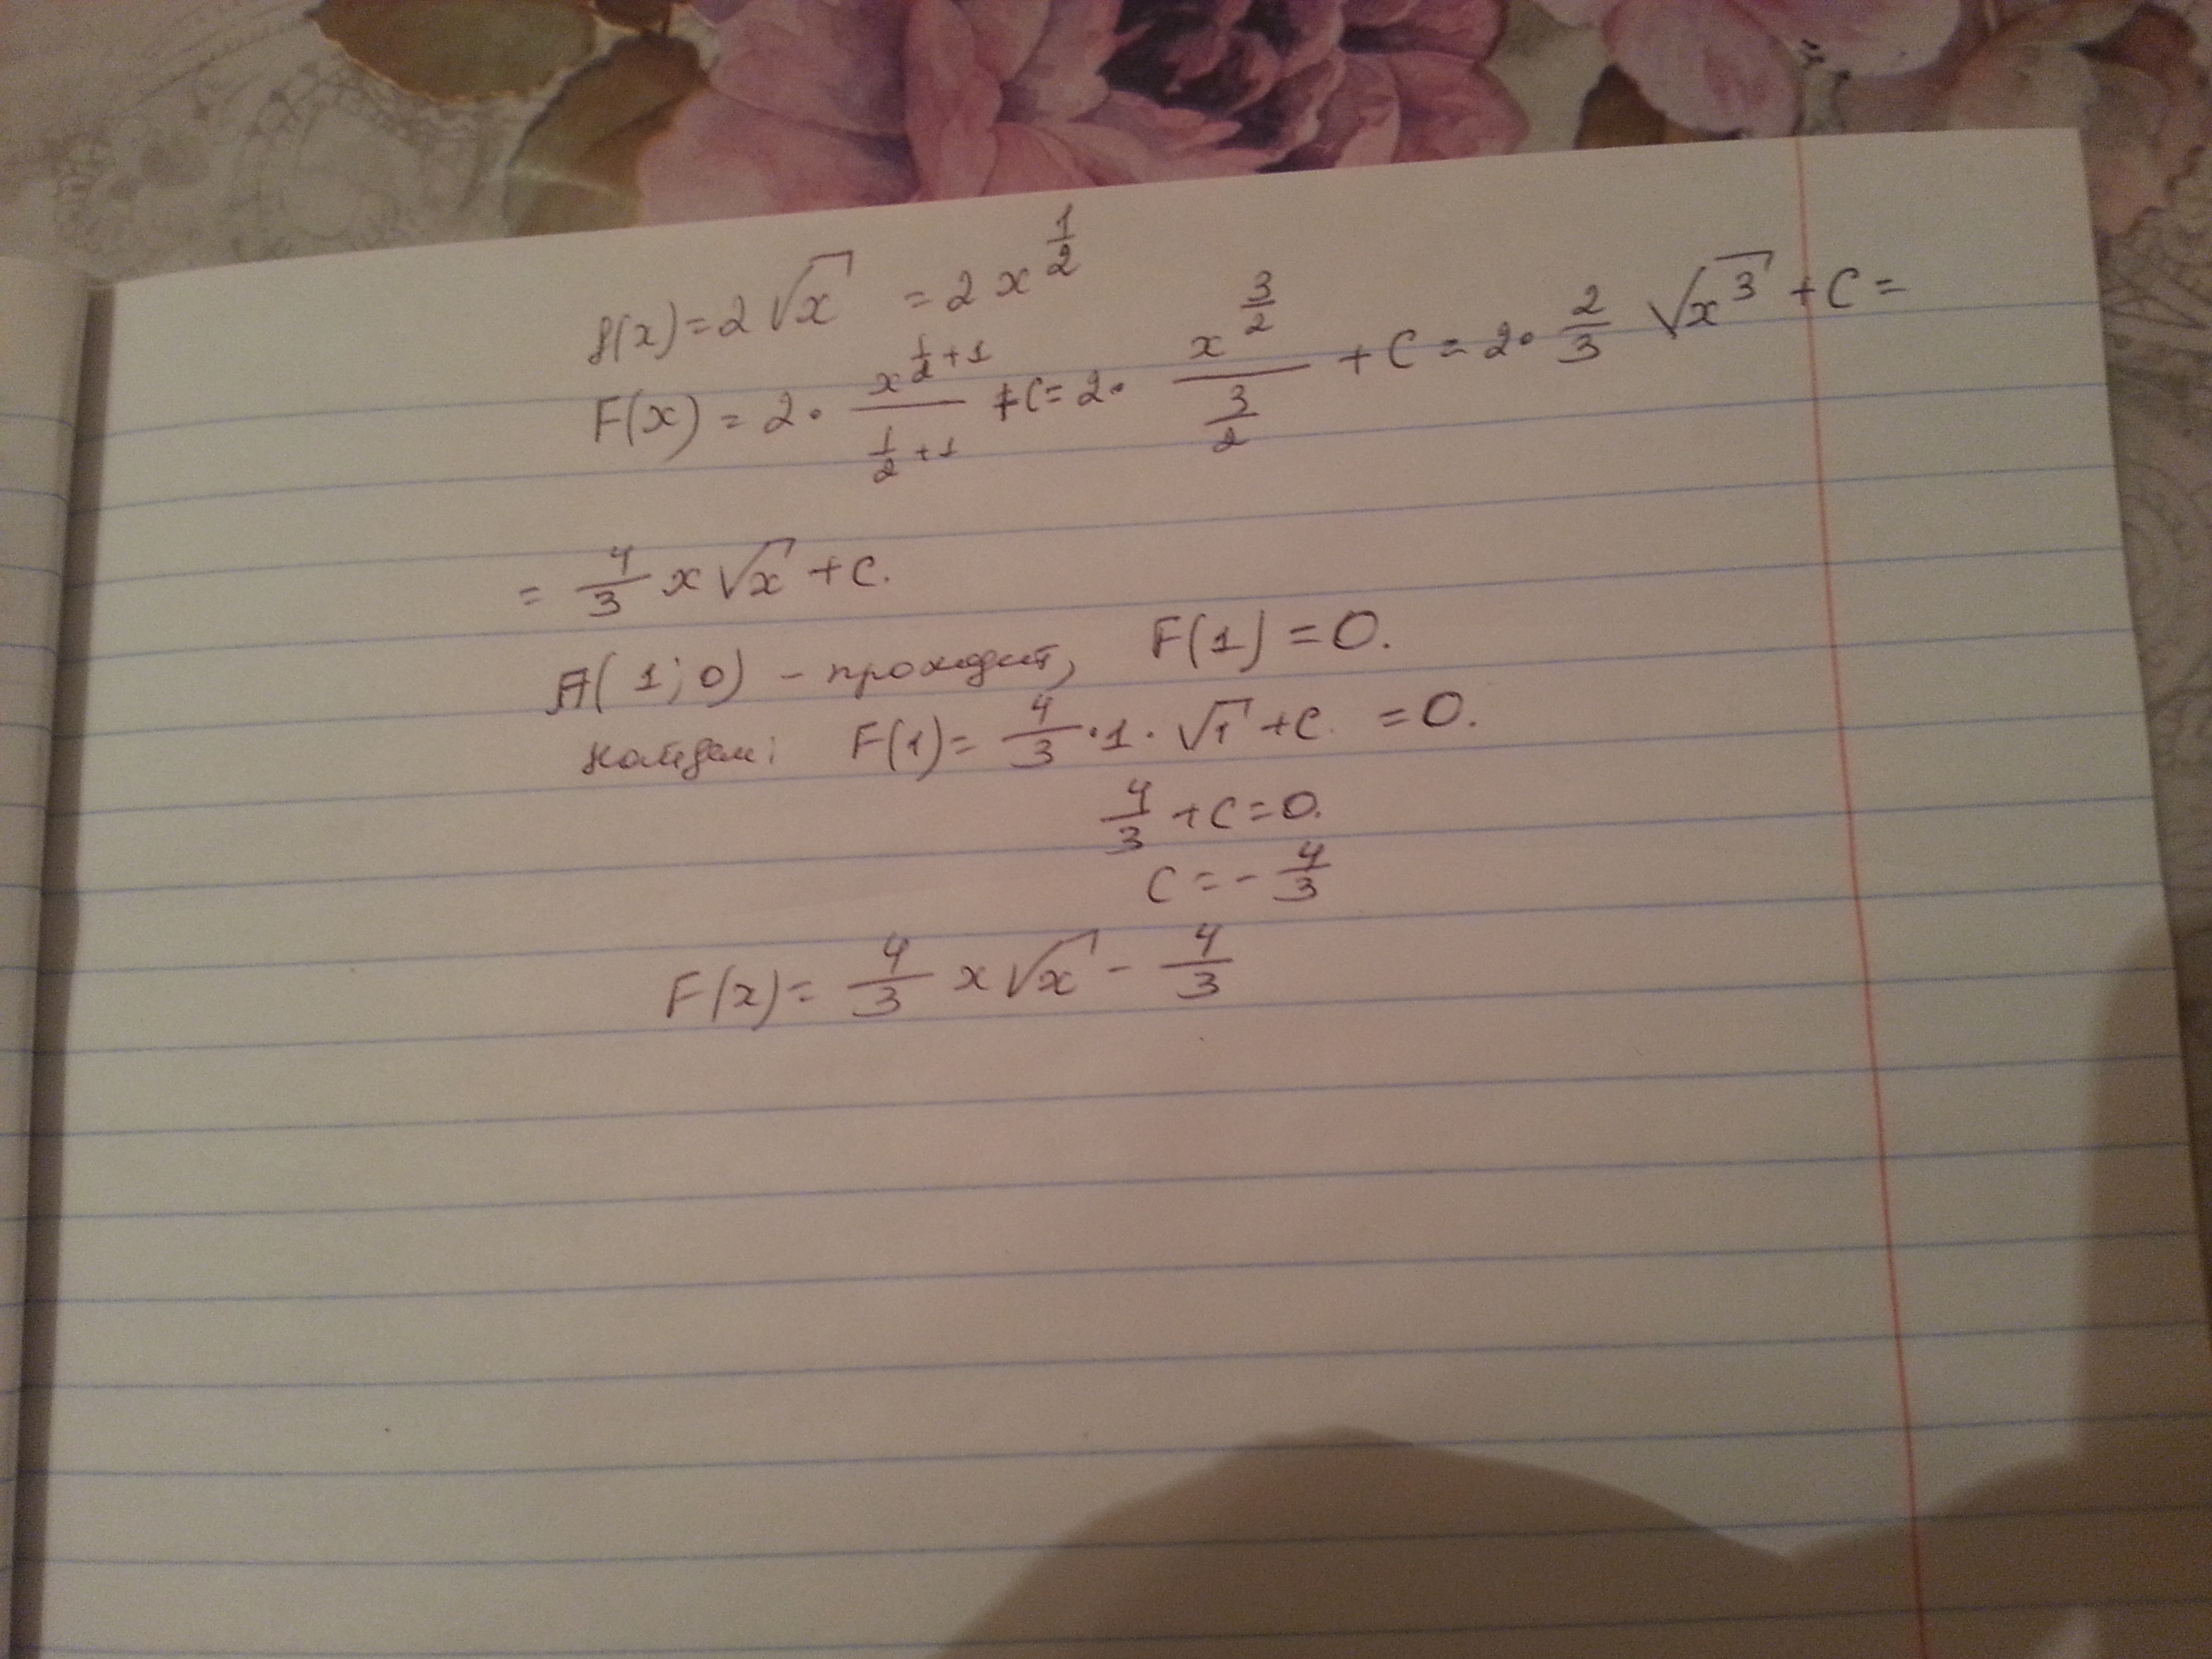 f(x)=2√x = 2x^(1/2)
F(x) = 2· x^(1/2+1)/(1/2+1) +C= 2· x^(3/2)/(3/2) + C = 2· 2/3 √x^3 + C =
= 4/3 x√x + C.
A(1;0) – проходит, F(1) = 0.
найдем: F(1)= 4/3 ·1· √1 + C. = 0.
4/3 + C = 0.
C = - 4/3
F(x)= 4/3 x√x - 4/3